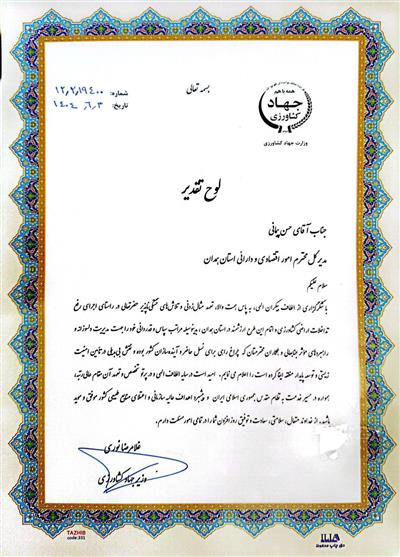 همه با هم
جهاد
کشاورزی
وزارت جهاد کشاورزی
بسمه تعالی
شماره: ۱۲,۲,۱۹۴۰۰
تاریخ: ۱۴۰۴,۶,۳
لوح تقدیر
جناب آقای حسن پیمانی
مدیر کل محترم امور اقتصادی و دارائی استان همدان
سلام علیکم
با شکرگزاری از الطاف بیکران الهی، به پاس همت والا، تعهد مثال زدنی و تلاش‌های خستگی ناپذیر حضرتعالی در راستای اجرای رفع
تداخلات اراضی کشاورزی و اتمام این طرح ارزشمند در استان همدان، بدینوسیله مراتب سپاس و قدردانی خود را جهت مدیریت دلسوزانه و
راهبری‌های موثر جنابعالی و همکاران محترمتان که چراغ راهی برای نسل حاضر و آینده سازان کشور بوده و نقش بی بدیلی در تامین امنیت
زیستی و توسعه پایدار منطقه ایفا کرده است را اعلام می نمایم. امید است در سایه الطاف الهی و در پرتو تخصص و تعهد آن مقام عالی رتبه،
همواره در مسیر خدمت به نظام مقدس جمهوری اسلامی ایران و پیشبرد اهداف عالیه سازمانی و اعتلای منابع طبیعی کشور موفق و موید
باشید. از خداوند متعال، سلامتی، سعادت و توفیق روز افزون شما را در تمامی امور مسئلت دارم.
غلامرضا نوری
وزیر جهاد کشاورزی
TAZHIB
code:331